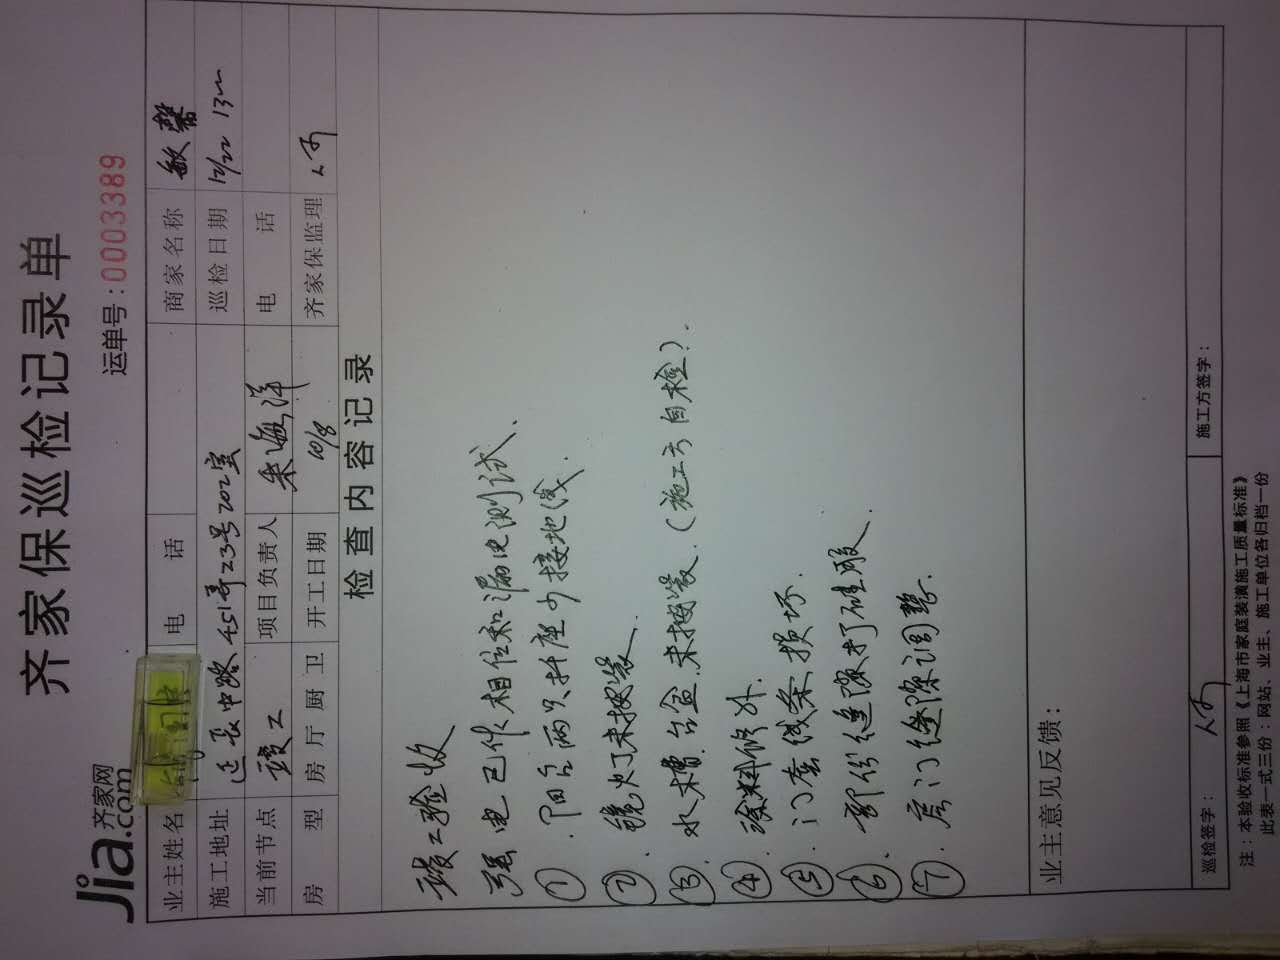 齐家保巡检记录单
Jia.com 齐家网
运单号:0003389
业主姓名 电话 商家名称 敏馨
施工地址 延长中路451弄23号202室 巡检日期 12/22 13
当前节点 竣工 项目负责人 朱海洋 电话
房型 房 厅 厨 卫 开工日期 10/8 齐家保监理
检查内容记录
竣工验收
强电已作相位和漏电测试.
① 阳台两只插座少接地线.
② 镜灯未按装.
③ 水槽.台盆.未按装.(施工方自检).
④ 涂料修补.
⑤ 门套线条损坏.
⑥ 部份缝隙打硅胶.
⑦ 房门缝隙调整.
业主意见反馈:
巡检签字: 施工方签字:
注:本验收标准参照《上海市家庭装潢施工质量标准》
此表一式三份:网站、业主、施工单位各归档一份